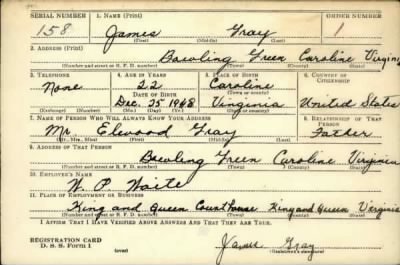 SERIAL NUMBER 1. NAME (Print) ORDER NUMBER
158 James Gray 1
(First) (Middle) (Last)
2. ADDRESS (Print)
Bowling Green Caroline Virginia
(Number and street or R. F. D. number) (Town) (County) (State)
3. TELEPHONE 4. AGE IN YEARS 5. PLACE OF BIRTH 6. COUNTRY OF CITIZENSHIP
None 22 Caroline
DATE OF BIRTH (Town or county)
Dec. 25 1918 Virginia United States
(Exchange) (Number) (Mo.) (Day) (Yr.) (State or country)
7. NAME OF PERSON WHO WILL ALWAYS KNOW YOUR ADDRESS 8. RELATIONSHIP OF THAT PERSON
Mr. Elwood Gray Father
(Mr., Mrs., Miss) (First) (Middle) (Last)
9. ADDRESS OF THAT PERSON
Bowling Green Caroline Virginia
(Number and street or R. F. D. number) (Town) (County) (State)
10. EMPLOYER'S NAME
W. P. Waite
11. PLACE OF EMPLOYMENT OR BUSINESS
King and Queen Courthouse King and Queen Virginia
(Number and street or R. F. D. number) (Town) (County) (State)
I AFFIRM THAT I HAVE VERIFIED ABOVE ANSWERS AND THAT THEY ARE TRUE.
REGISTRATION CARD
D. S. S. Form 1 (over) James Gray
(Registrant's signature)